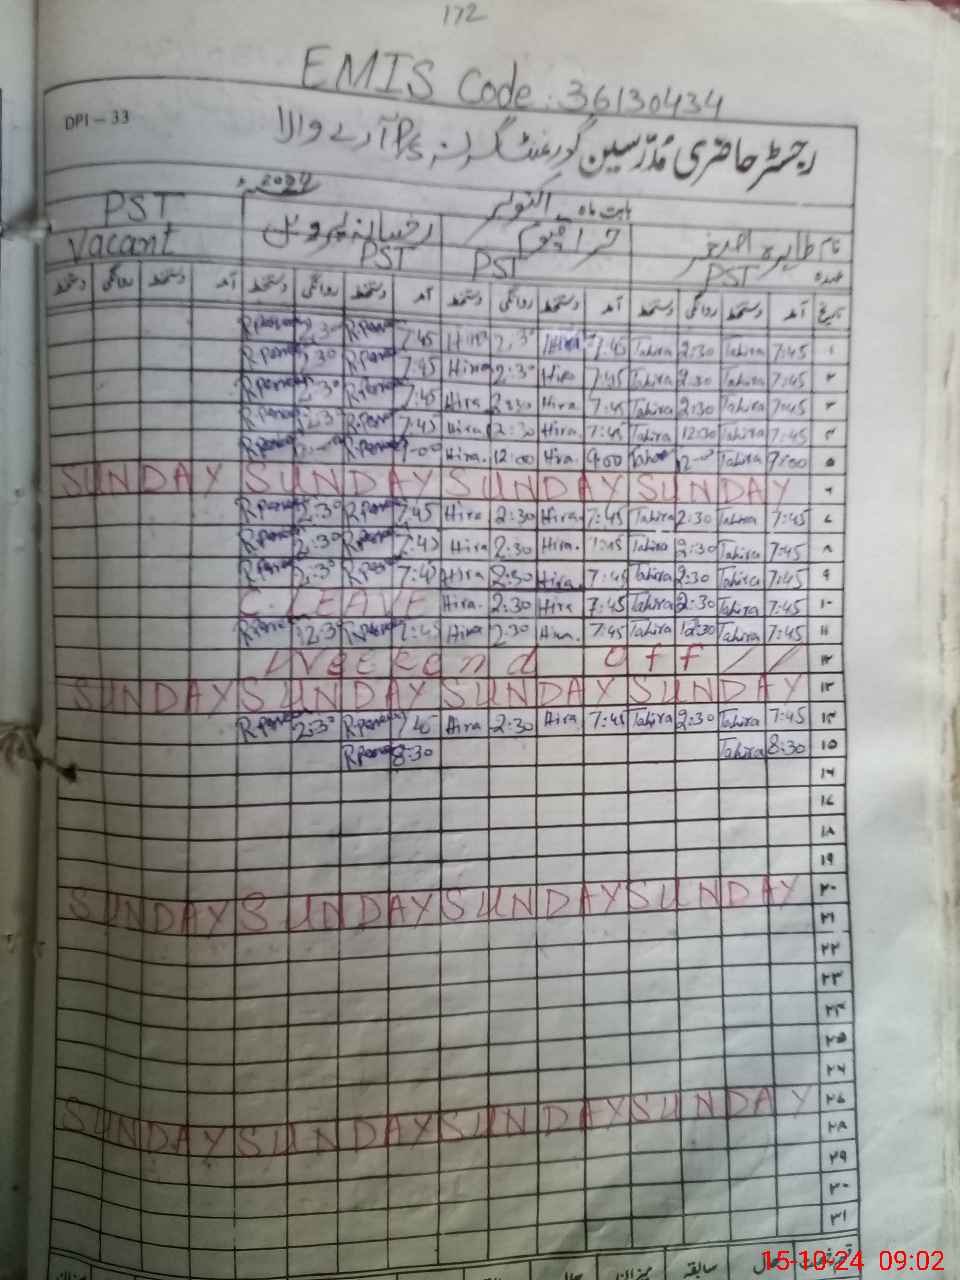 172
EMIS Code: 36130434
DPI - 33
رجسٹر حاضری مدرسین گورنمنٹ گرلز P/S آرے والا
بابت ماہ اکتوبر 2024ء
نام طاہرہ اصغر حرا قیوم رخسانہ پروین PST
عہدہ PST PST PST Vacant
تاریخ آمد دستخط روانگی دستخط آمد دستخط روانگی دستخط آمد دستخط روانگی دستخط آمد دستخط روانگی دستخط
۱ 7:45 Tahira 2:30 Tahira 7:45 Hira 2:30 Hira 7:45 R.parveen 2:30 R.parveen
۲ 7:45 Tahira 2:30 Tahira 7:45 Hira 2:30 Hira 7:45 R.parveen 2:30 R.parveen
۳ 7:45 Tahira 2:30 Tahira 7:45 Hira 2:30 Hira 7:45 R.parveen 2:30 R.parveen
۴ 7:45 Tahira 12:30 Tahira 7:45 Hira 2:30 Hira 7:45 R.parveen 12:30 R.parveen
۵ 9:00 Tahira 12:00 Tahira 9:00 Hira 12:00 Hira 9:00 R.parveen R.parveen
۶ SUNDAY SUNDAY SUNDAY SUNDAY
۷ 7:45 Tahira 2:30 Tahira 7:45 Hira 2:30 Hira 7:45 R.parveen 2:30 R.parveen
۸ 7:45 Tahira 2:30 Tahira 7:45 Hira 2:30 Hira 7:45 R.parveen 2:30 R.parveen
۹ 7:45 Tahira 2:30 Tahira 7:45 Hira 2:30 Hira 7:45 R.parveen 2:30 R.parveen
۱۰ 7:45 Tahira 2:30 Tahira 7:45 Hira 2:30 Hira C. LEAVE
۱۱ 7:45 Tahira 12:30 Tahira 7:45 Hira 2:30 Hira 7:45 R.parveen 12:30 R.parveen
۱۲ Weekend off
۱۳ SUNDAY SUNDAY SUNDAY SUNDAY
۱۴ 7:45 Tahira 2:30 Tahira 7:45 Hira 2:30 Hira 7:45 R.parveen 2:30 R.parveen
۱۵ 8:30 Tahira 8:30 R.parveen
۱۶
۱۷
۱۸
۱۹
۲۰ SUNDAY SUNDAY SUNDAY SUNDAY
۲۱
۲۲
۲۳
۲۴
۲۵
۲۶
۲۷ SUNDAY SUNDAY SUNDAY SUNDAY
۲۸
۲۹
۳۰
۳۱
حال سابقہ میزان حال
15-10-24 09:02